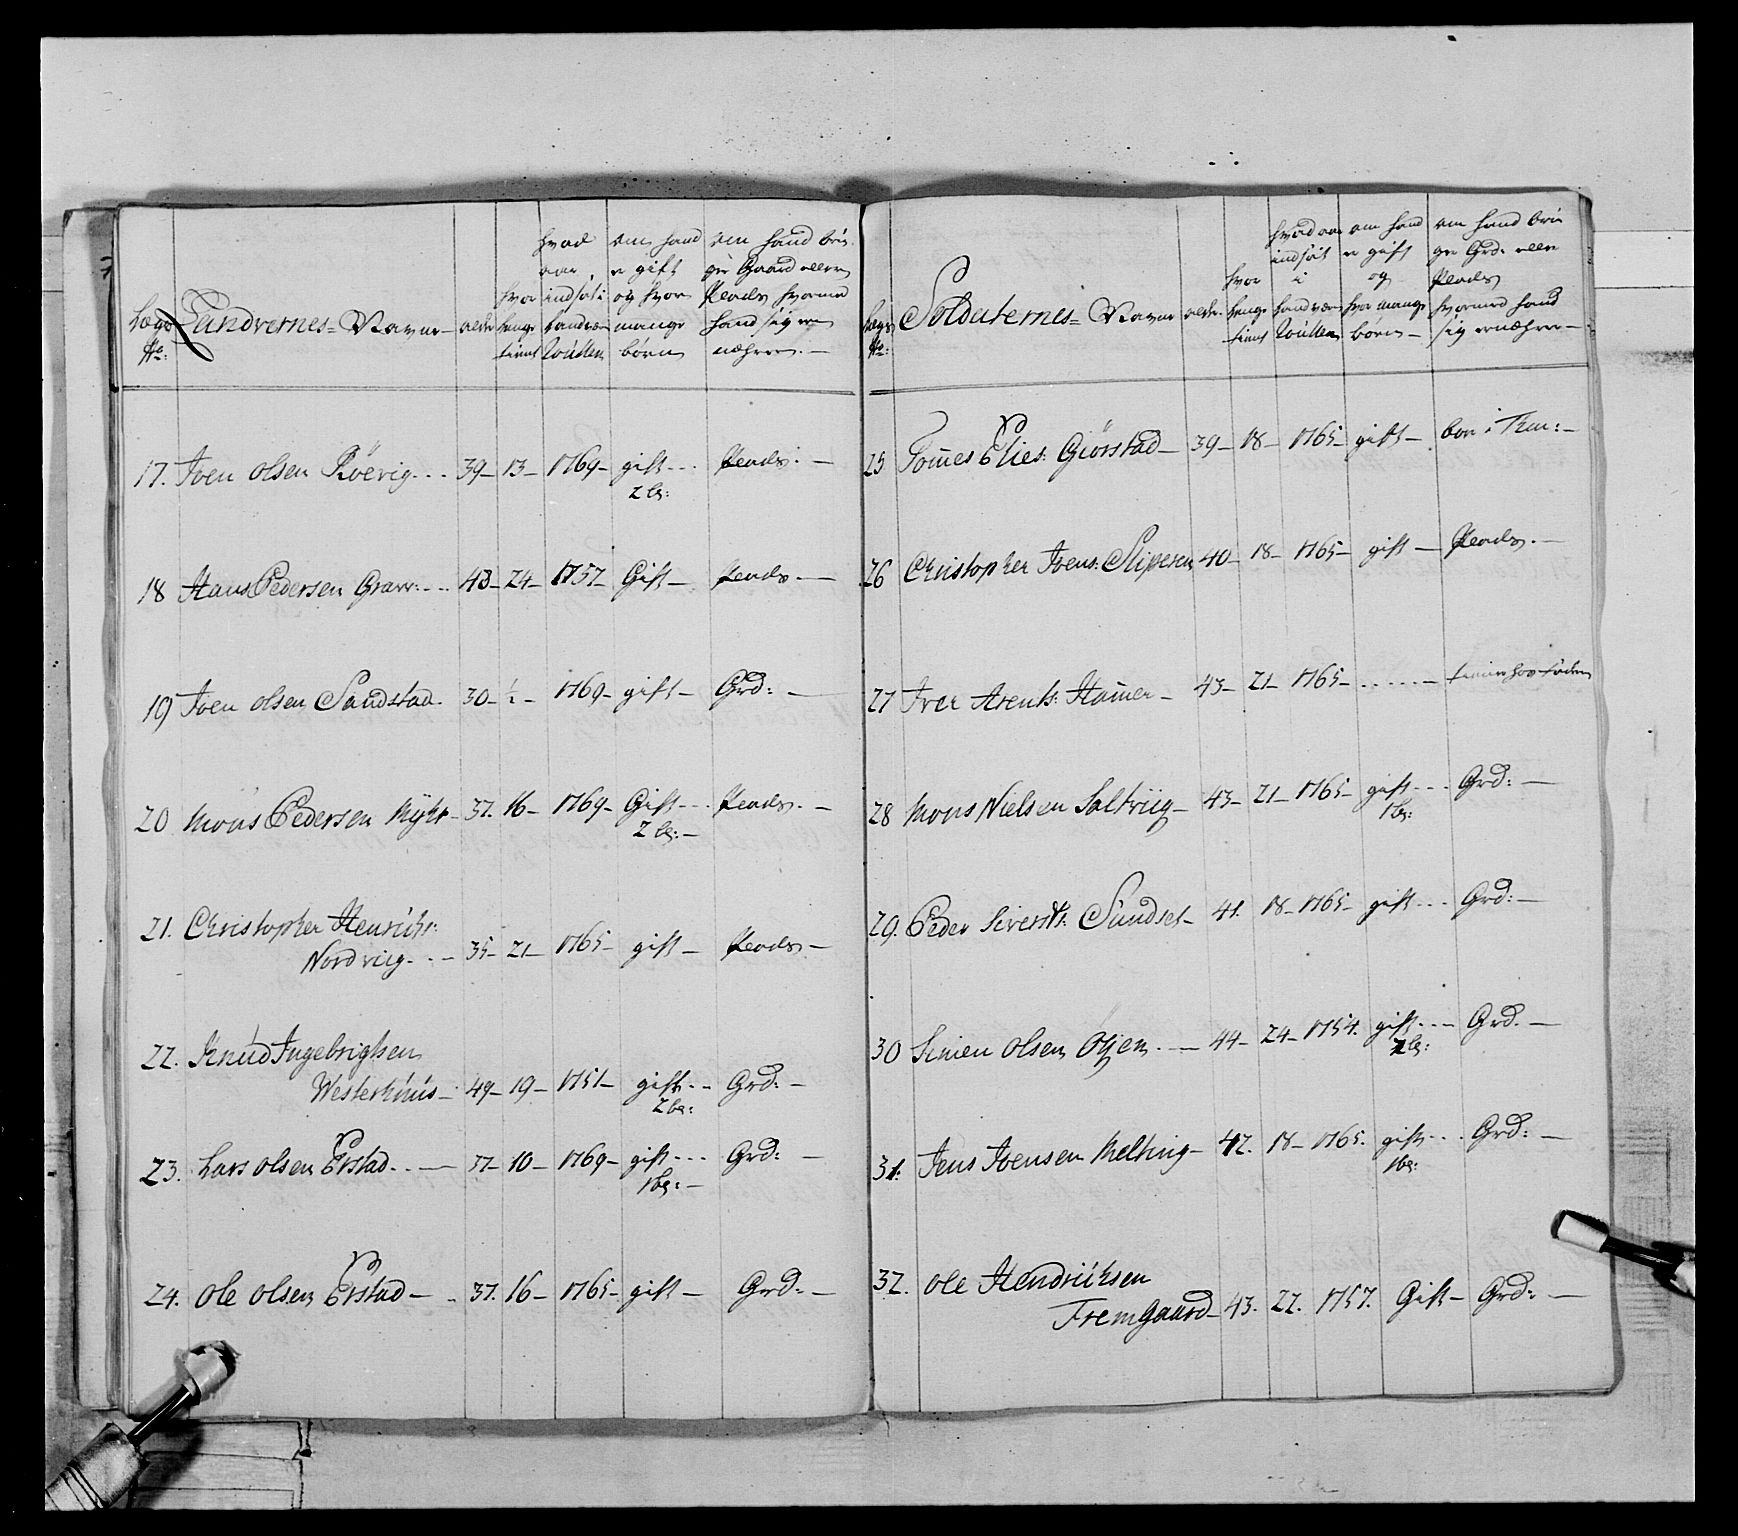 Lægs No: Landvernes= Navne alder hvor lenge tient hvad aar indsat i Landværn Rullen om hand er gift og hvor mange börn om hand brüger Gaard eller Plads hvormed hand sig ernæhrer.—
17. Joen Olsen Röevig... 39— 13— 1769— gift... Plads.—
2 bn:
18 Hans Pedersen Grav:... 43— 24— 1757 Gift— Plads.—
19 Joen Olsen Sandstad. 30— 1769— gift— Grd:—
20 Mons Pedersen Mÿhr— 37. 16— 1769— Gift... Plads.—
2 bn:—
21. Christopher Henrichs:
Nordvieg..— 35— 21— 1765— gift— Plads—
22. Knud Ingebrigtsen
Westerhuus— 49— 19— 1751— gift.. Grd:—
2 bn:
23. Lars Olsen Erstad..— 37— 10— 1769— gift... Grd:—
1 bn:—
24. Ole Olsen Erstad—. 37. 16— 1765— gift— Grd:—
Lægs No: Soldaternes= Navne alder. hvor lenge tient hvad aar indsat i Landværn Rullen om hand er gift og hvor mange börn— om hand brüger Grd: eller Plads hvormed hand sig ernæhrer—
25 Tomes Elies: Giörstad— 39— 18— 1765— gift— boe i Trm:—
26 Christopher Joens: Sliperen 40— 18— 1765— gift— Plads.—
27 Iver Arents: Hamer— 43— 21— 1765— ......— tiener hos
28 Mons Nielsen Saltviig— 43— 21— 1765— gift... Grd:—
1 bn:
29. Peder Siverts: Sundset— 41. 18— 1765— gift... Grd:—
30 Simen Olsen Öÿen.— 44— 24— 1754. gift..— Grd.—
2 bn:
31. Jens Joensen Melting— 42. 18— 1765. gift... Grd:—
1 bn:
32. Ole Hendrichsen
Fremgaard— 43. 22. 1757. Gift— Grd:—